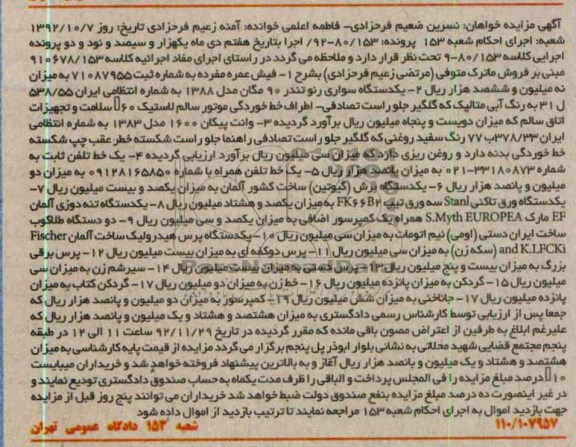 آگهی مزایده خواهان: نسرین ضعیم فرحزادی- فاطمه اعلمی خوانده: آمنه زعیم فرحزادی تاریخ: روز ۱۳۹۲/۱۰/۷
شعبه: اجرای احکام شعبه ۱۵۳ پرونده: ۹۲/-۸۰/۱۵۳ اجرا بتاریخ هفتم دی ماه یکهزار و سیصد و نود و دو پرونده
اجرایی کلاسه ۹-۸۰/۱۵۳ تحت نظر قرار دارد و ملاحظه می گردد در راستای اجرای مفاد اجرائیه کلاسه ۹۱۰۶۷۸/۱۵۳
مبنی بر فروش ماترک متوفی (مرتضی زعیم فرحزادی) بشرح ۱- فیش عمره مفرده به شماره ثبت ۷۱۰۸۷۹۵۵ به میزان
نه میلیون و ششصد هزار ریال ۲- یکدستگاه سواری رنو تندر ۹۰ مگان مدل ۱۳۸۸ به شماره انتظامی ایران ۵۳۸/۵۵
ل ۳۱ به رنگ آبی متالیک که گلگیر جلو راست تصادفی- اطراف خط خوردگی موتور سالم لاستیک ۶۰٪ سلامت و تجهیزات
اتاق سالم که میزان دویست و پنجاه میلیون ریال برآورد گردیده ۳- وانت پیکان ۱۶۰۰ مدل ۱۳۸۳ به شماره انتظامی
ایران ۳۷۸/۳۳ب۷۷ رنگ سفید روغنی که گلگیر جلو راست تصادفی راهنما جلو راست شکسته خطر عقب چپ شکسته
خط خوردگی بدنه دارد و روغن ریزی دارد که میزان سی میلیون ریال برآورد ارزیابی گردیده ۴- یک خط تلفن ثابت به
شماره ۳۳۱۸۰۸۷۳-۰۲۱ به میزان پانصد هزار ریال ۵- یک خط تلفن همراه با شماره ۰۹۱۲۸۱۶۵۸۵۰ به میزان دو
میلیون و پانصد هزار ریال ۶- یکدستگاه برش (گیوتین) ساخت کشور آلمان به میزان یکصد و بیست میلیون ریال ۷-
یکدستگاه ورق تاکنی Stanl سه ورق تیپ FK۶۶B۲ به میزان یکصد و هشتاد میلیون ریال ۸- یکدستگاه تنه دوزی آلمان
EF مارک S.Myth EUROPEA همراه یک کمپرسور اضافی به میزان یکصد و سی میلیون ریال ۹- دو دستگاه طلاکوب
ساخت ایران دستی (اومی) نیم اتومات به میزان سی میلیون ریال ۱۰- یکدستگاه پرس هیدرولیک ساخت آلمان Fischer
and K.LFCKi (سکه زن) به میزان سی میلیون ریال ۱۱- پرس دوکفه ای به میزان بیست میلیون ریال ۱۲- پرس برقی
بزرگ به میزان بیست و پنج میلیون ریال ۱۳- پرس دستی به میزان بیست میلیون ریال ۱۴- سیرشم زن به میزان سی
میلیون ریال ۱۵- گردکن به میزان پانزده میلیون ریال ۱۶- خط زن به میزان دو میلیون ریال ۱۷- گردکن کتاب به میزان
پانزده میلیون ریال ۱۷- جاناخنی به میزان شش میلیون ریال ۱۹- کمپرسور به میزان دو میلیون و پانصد هزار ریال که
جمعا پس از ارزیابی توسط کارشناس رسمی دادگستری به میزان هشتصد و هشتاد و یک میلیون و پانصد هزار ریال که
علیرغم ابلاغ به طرفین از اعتراض مصون باقی مانده که مقرر گردیده در تاریخ ۹۲/۱۱/۲۹ ساعت ۱۱ الی ۱۲ در طبقه
پنجم مجتمع قضایی شهید محلاتی به نشانی بلوار ابوذر پل پنجم برگزار می گردد مزایده از قیمت پایه کارشناسی به میزان
هشتصد و هشتاد و یک میلیون و پانصد هزار ریال آغاز و به بالاترین پیشنهاد فروخته خواهد شد و خریداران میبایست
۱۰٪ درصد مبلغ مزایده را فی المجلس پرداخت و الباقی را ظرف مدت یکماه به حساب صندوق دادگستری تودیع نمایند و
در غیر اینصورت ده درصد مبلغ مزایده بنفع صندوق دولت ضبط خواهد شد خریداران می توانند پنج روز قبل از مزایده
جهت بازدید اموال به اجرای احکام شعبه ۱۵۳ مراجعه نمایند تا ترتیب بازدید از اموال داده شود
۱۱۰/۱۰۷۹۵۷ شعبه ۱۵۳ دادگاه عمومی تهران